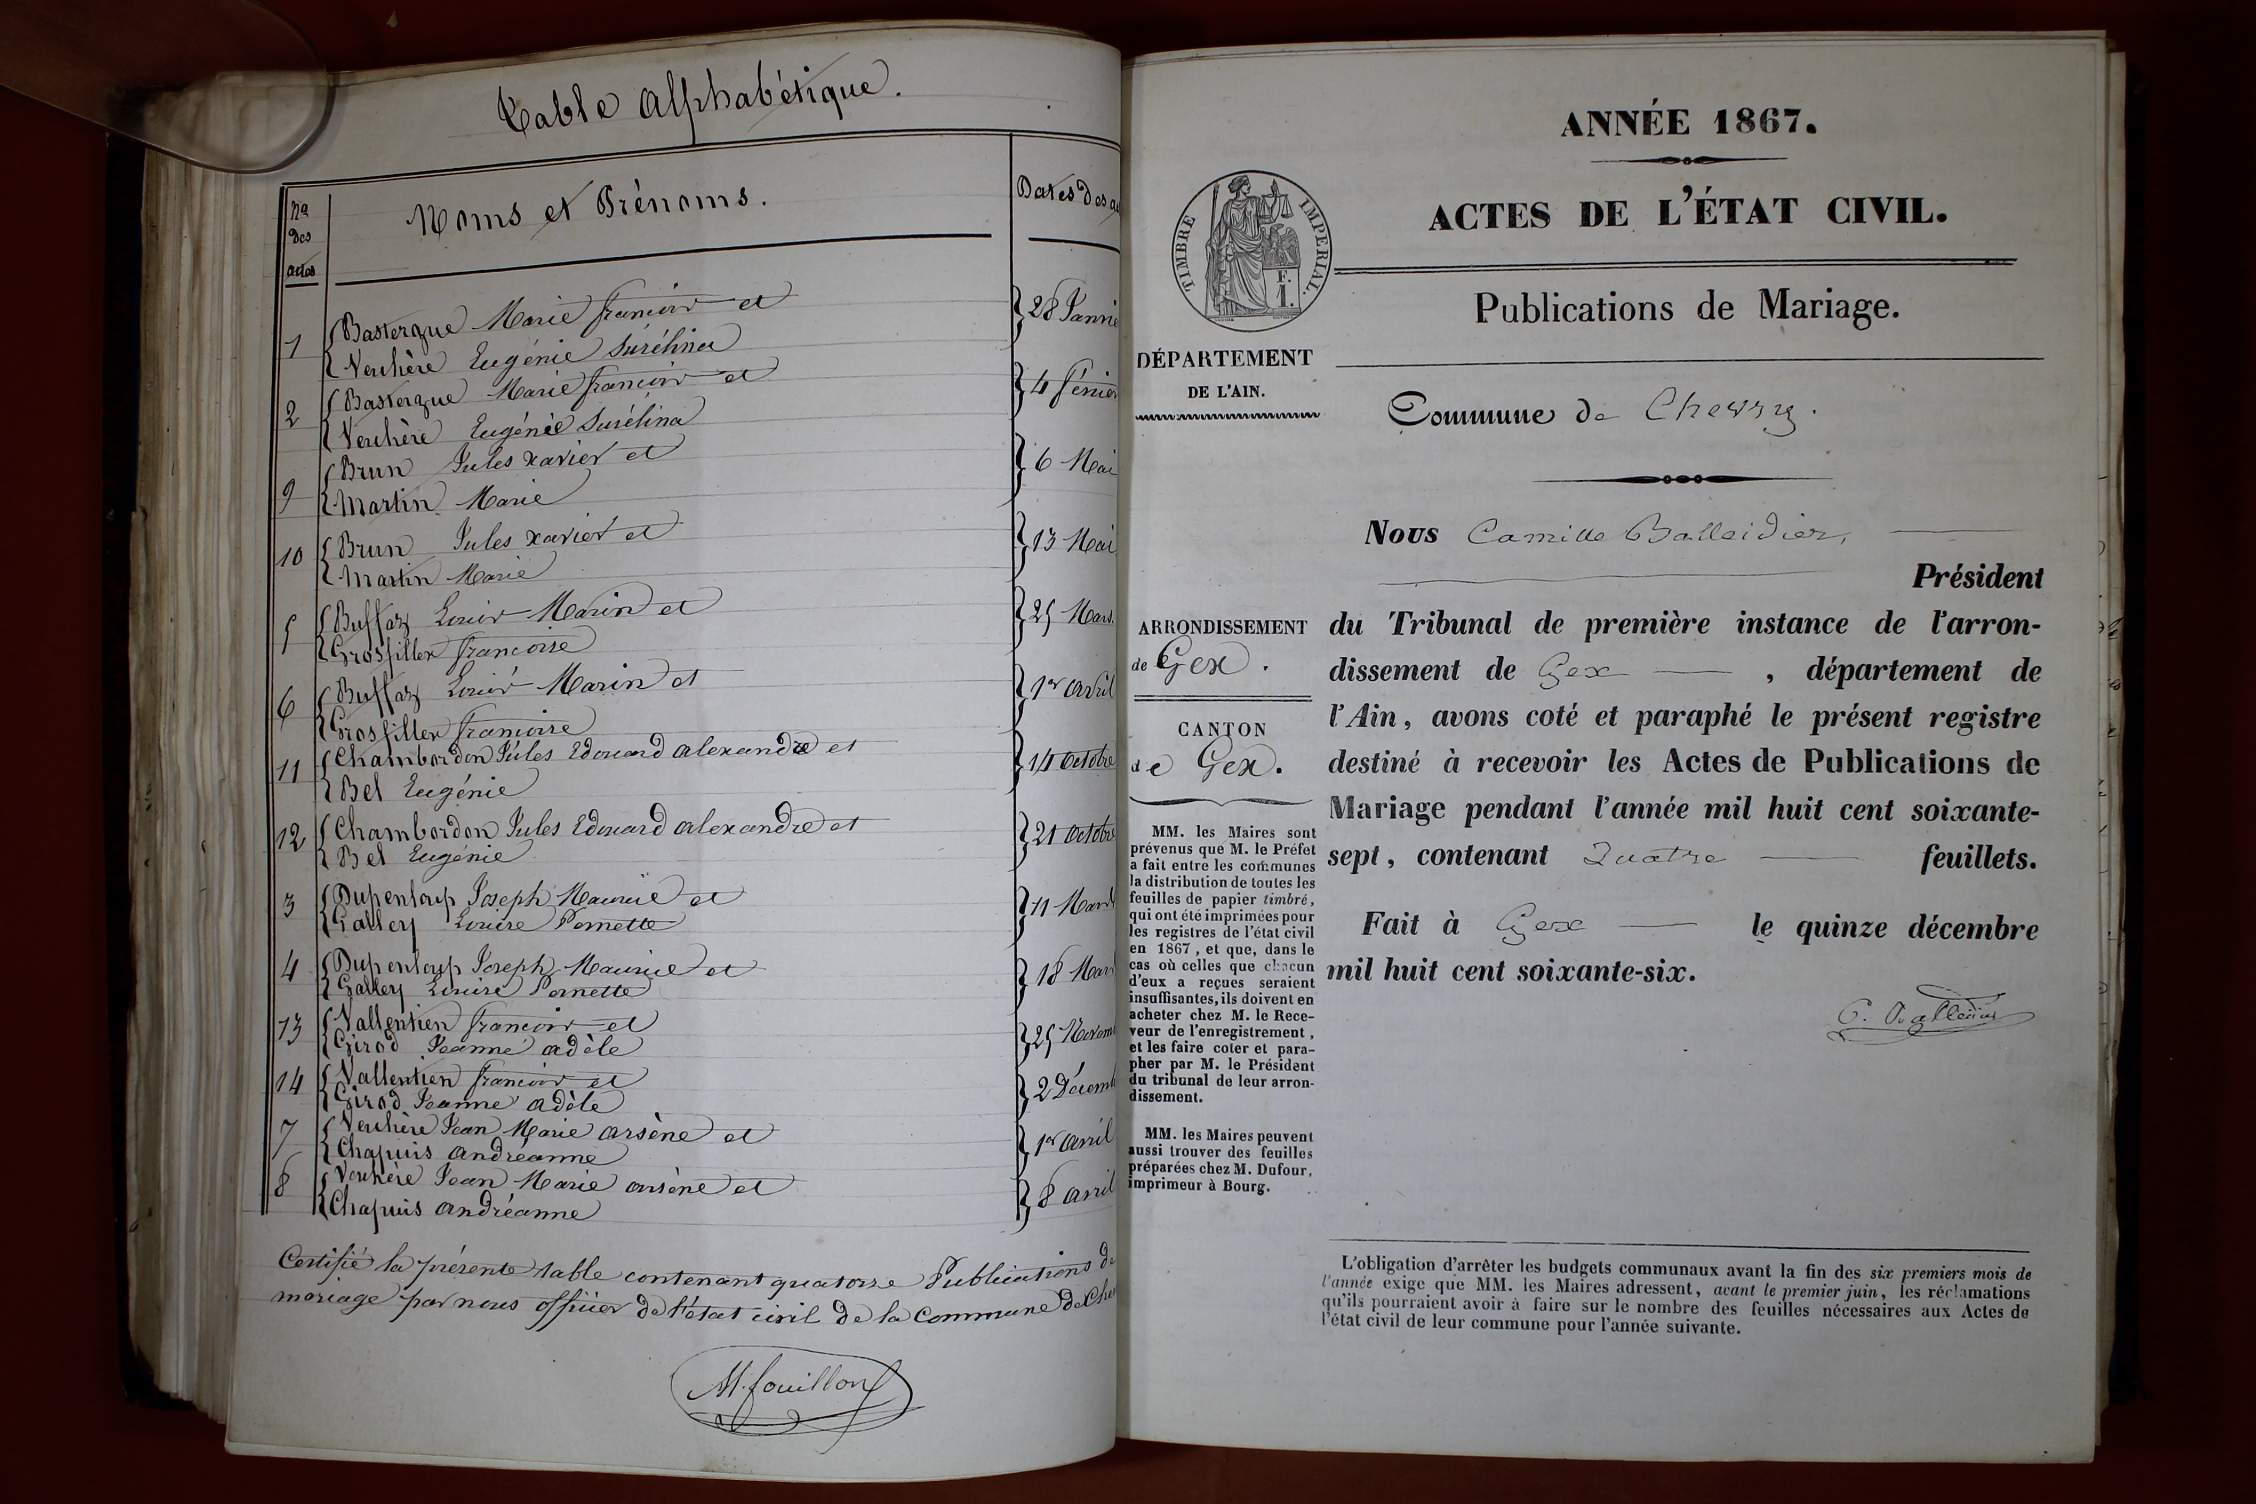 Table Alphabétique.
Nos des actes
Noms et Prénoms.
Dates des ac
1 Basterque Marie françois et
Verchère Eugénie Surélina
28 Janvie
2 Basterque Marie françois et
Verchère Eugénie Surélina
4 février
9 Brun Jules xavier et
Martin Marie
6 Mai
10 Brun Jules xavier et
Martin Marie
13 Mai
5 Buffaz Louis Marin et
Grosfillex françoise
25 Mars.
6 Buffaz Louis Marin et
Grosfillex françoise
1er avril
11 Chambordon Jules Edouard alexandre et
Bel Eugénie
14 octobre
12 Chambordon Jules Edouard alexandre et
Bel Eugénie
21 octobre
3 Dupenloup Joseph Maurice et
Galley Louise Pernette
11 Mars
4 Dupenloup Joseph Maurice et
Galley Louise Pernette
18 Mars
13 Vallentien françois et
Girod Jeanne adèle
25 Novem
14 Vallentien françois et
Girod Jeanne adèle
2 Décemb
7 Verchère Jean Marie arsène et
Chapuis andréanne
1er avril
8 Verchère Jean Marie arsène et
Chapuis andréanne
8 avril
Certifié la présente table contenant quatorze Publications de
mariage par nous officier de l'état civil de la commune de Che
M. fouillon
ANNÉE 1867.
ACTES DE L'ÉTAT CIVIL.
TIMBRE IMPERIAL.
F.
1.
Publications de Mariage.
DÉPARTEMENT
DE L'AIN.
Commune de Chevry.
Nous Camille Balleidier,
Président
ARRONDISSEMENT
de Gex.
CANTON
de Gex.
du Tribunal de première instance de l'arron-
dissement de Gex, département de
l'Ain, avons coté et paraphé le présent registre
destiné à recevoir les Actes de Publications de
Mariage pendant l'année mil huit cent soixante-
sept, contenant Quatre feuillets.
Fait à Gex le quinze décembre
mil huit cent soixante-six.
C. Balleidier
MM. les Maires sont
prévenus que M. le Préfet
a fait entre les communes
la distribution de toutes les
feuilles de papier timbré,
qui ont été imprimées pour
les registres de l'état civil
en 1867, et que, dans le
cas où celles que chacun
d'eux a reçues seraient
insuffisantes, ils doivent en
acheter chez M. le Rece-
veur de l'enregistrement,
et les faire coter et para-
pher par M. le Président
du tribunal de leur arron-
dissement.
MM. les Maires peuvent
aussi trouver des feuilles
préparées chez M. Dufour,
imprimeur à Bourg.
L'obligation d'arrêter les budgets communaux avant la fin des six premiers mois de
l'année exige que MM. les Maires adressent, avant le premier juin, les réclamations
qu'ils pourraient avoir à faire sur le nombre des feuilles nécessaires aux Actes de
l'état civil de leur commune pour l'année suivante.